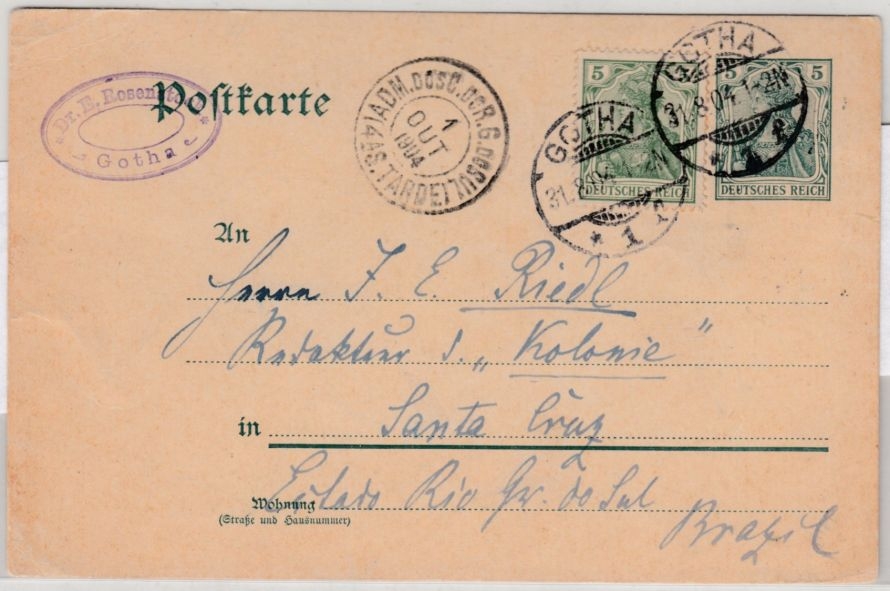 Postkarte
Dr. E. Rosen
Gotha
ADM. DOS C. DO R. G. DO SUL
1
OUT
1904
(4AS. TARDE)
5
DEUTSCHES REICH
GOTHA
31.8.04 1-2N
* 1 f
5 5
DEUTSCHES REICH
GOTHA
31.8.04 1-2N
* 1 f
An
Herrn J. E. Riedl
Redakteur d. „Kolonie"
in Santa Cruz
Estado Rio Gr. do Sul
Wohnung
(Straße und Hausnummer)
Brazil